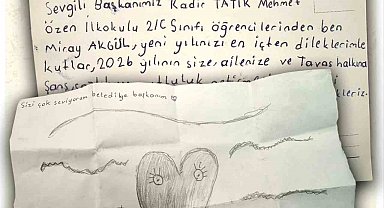 Sevgili Başkanımız Kadir TATIK Mehmet
Özen İlkokulu 2/C Sınıfı öğrencilerinden ben
Miray AKGÜL, yeni yılınızı en içten dileklerimle
kutlar, 2026 yılının size, ailenize ve Tavas halkına
Sizi çok seviyorum belediye başkanım